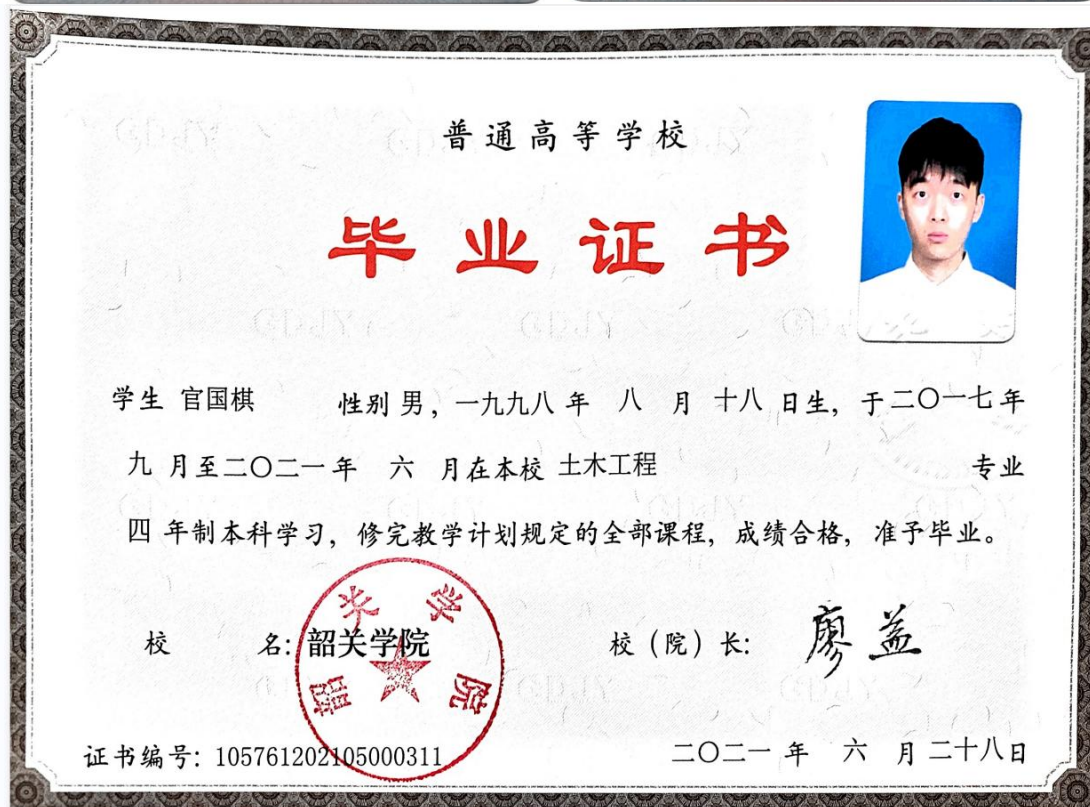 普通高等学校
毕业证书
学生 官国棋 性别 男，一九九八 年 八 月 十八 日生，于二〇一七年
九 月至二〇二一年 六 月在本校 土木工程 专业
四 年制本科学习，修完教学计划规定的全部课程，成绩合格，准予毕业。
校 名：韶关学院 校（院）长： 廖益
韶关学院
证书编号：105761202105000311 二〇二一 年 六 月二十八日